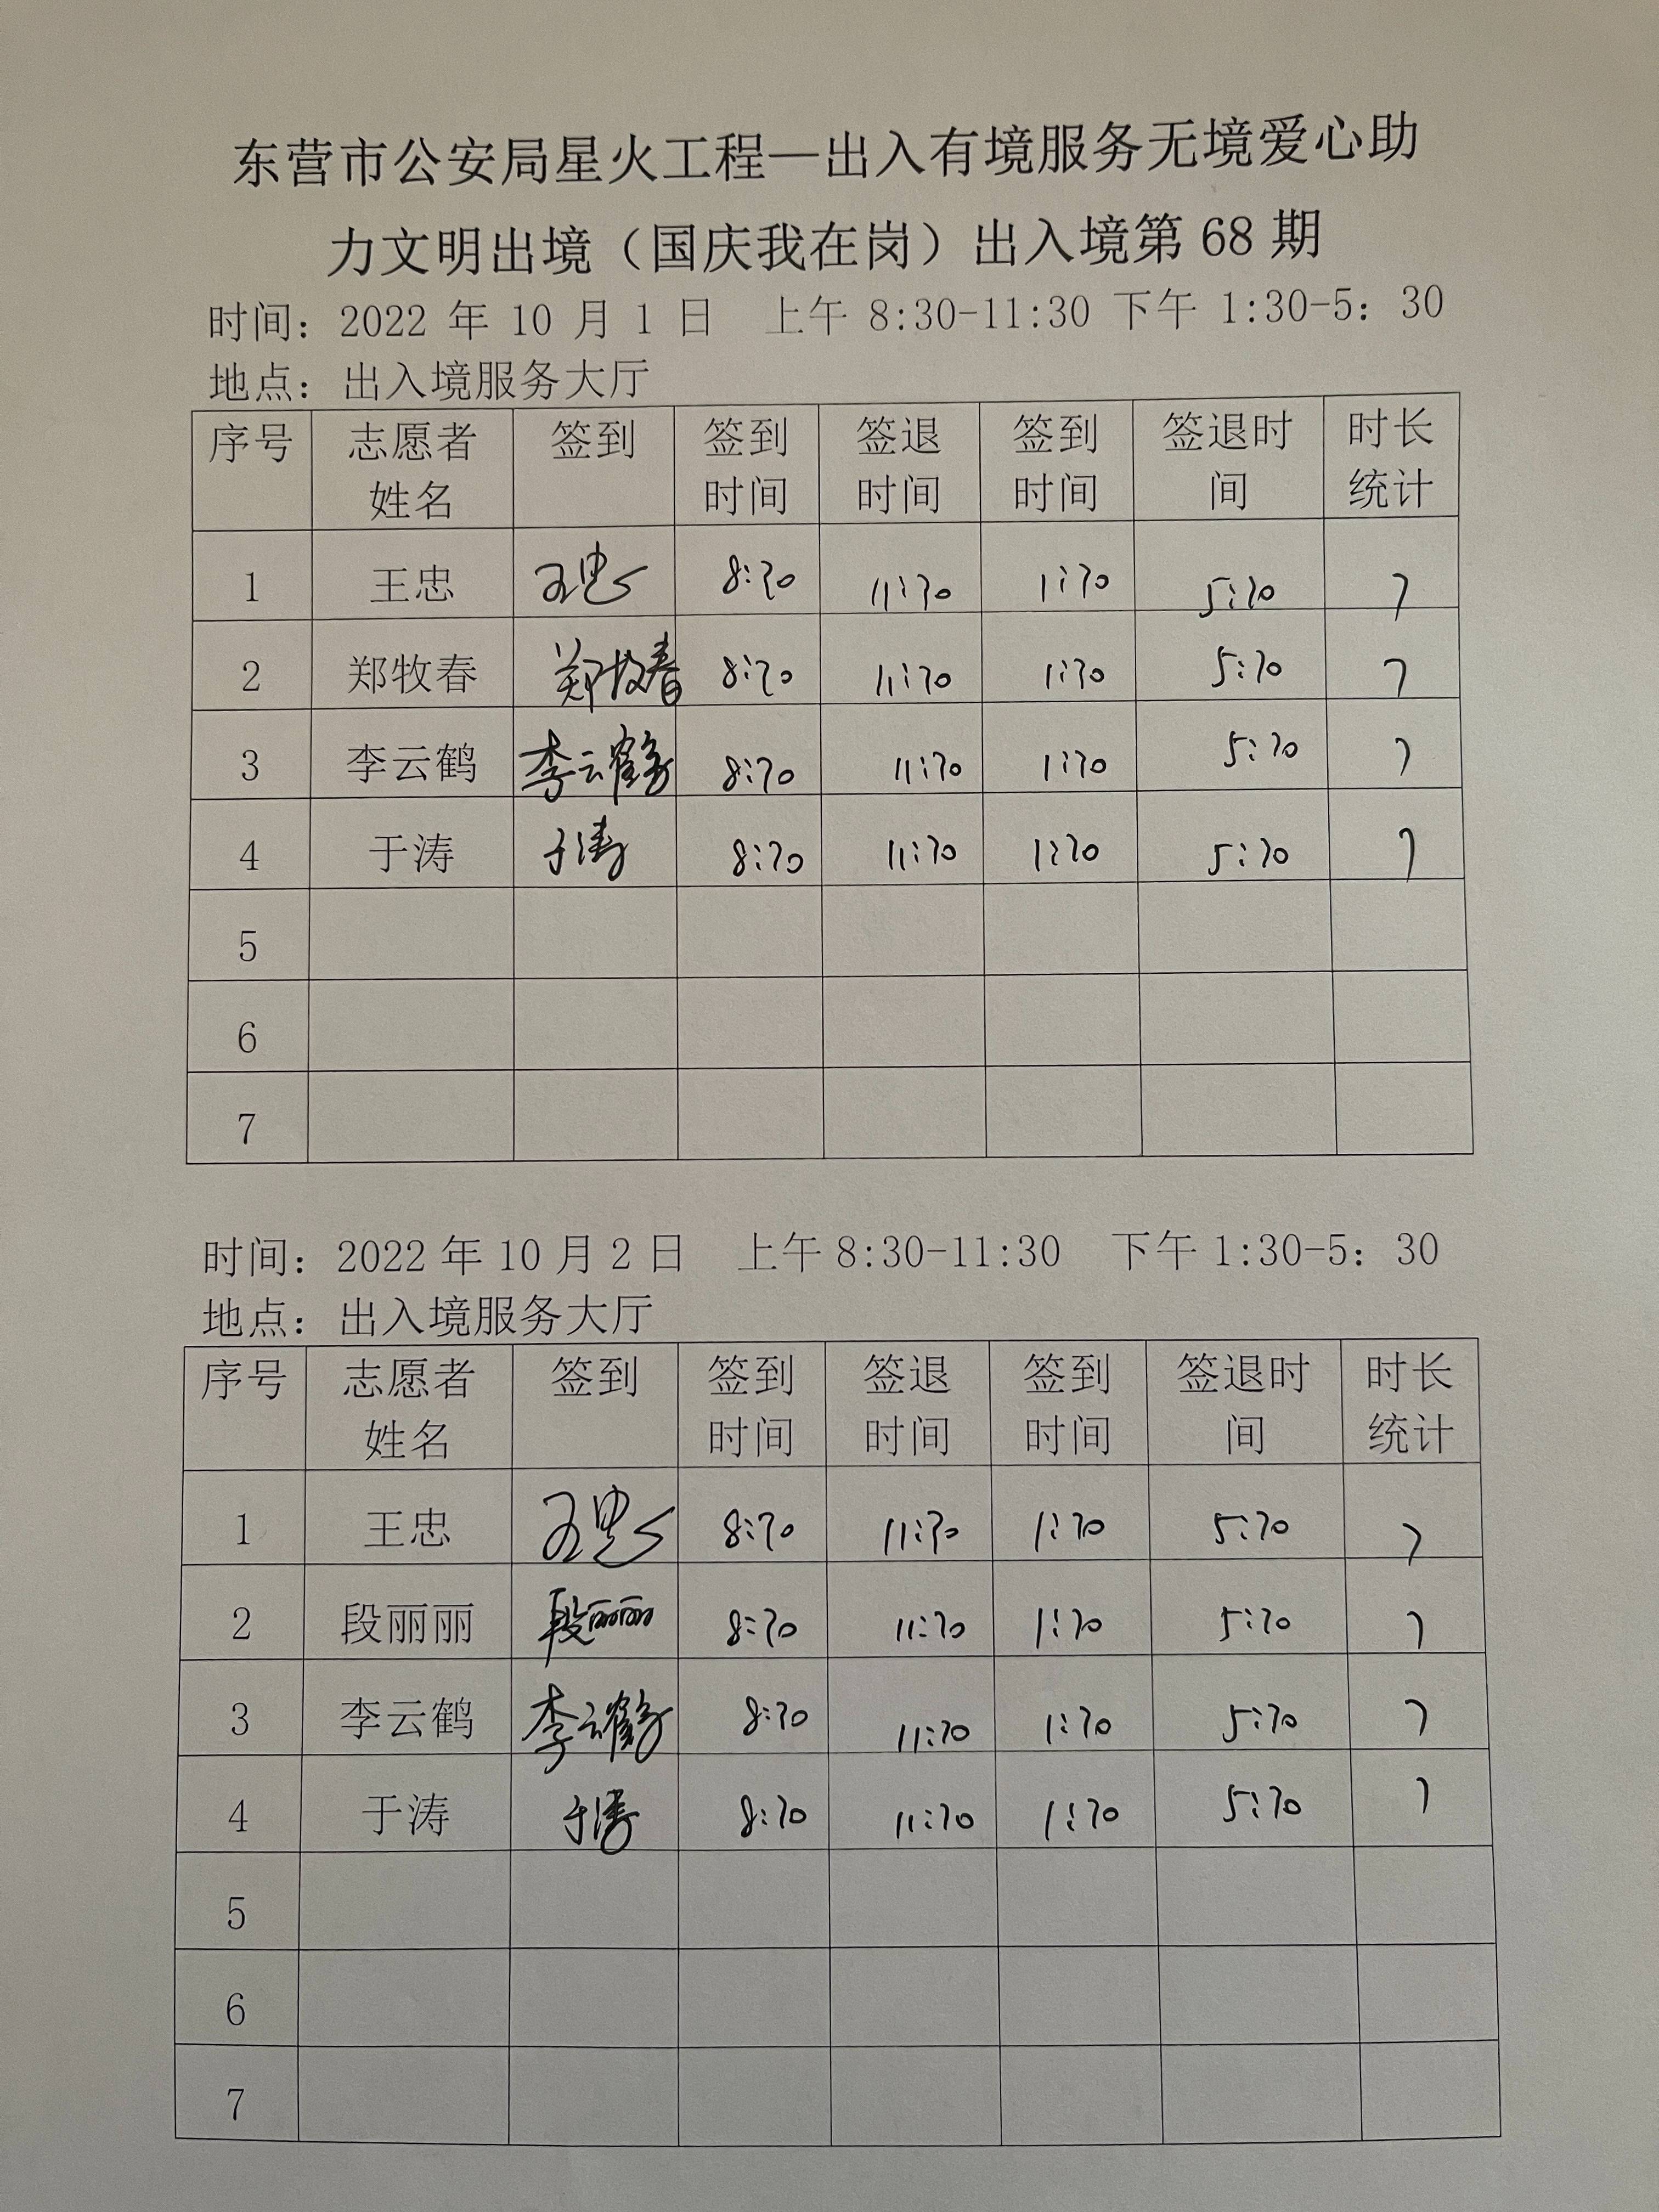 东营市公安局星火工程—出入有境服务无境爱心助
力文明出境（国庆我在岗）出入境第 68 期
时间：2022 年 10 月 1 日 上午 8:30-11:30 下午 1:30-5：30
地点：出入境服务大厅
序号 志愿者姓名 签到 签到时间 签退时间 签到时间 签退时间 时长统计
1 王忠 王忠 8:30 11:30 1:30 5:30 7
2 郑牧春 郑牧春 8:30 11:30 1:30 5:30 7
3 李云鹤 李云鹤 8:30 11:30 1:30 5:30 7
4 于涛 于涛 8:30 11:30 1:30 5:30 7
5
6
7
时间：2022 年 10 月 2 日 上午 8:30-11:30 下午 1:30-5：30
地点：出入境服务大厅
序号 志愿者姓名 签到 签到时间 签退时间 签到时间 签退时间 时长统计
1 王忠 王忠 8:30 11:30 1:30 5:30 7
2 段丽丽 段丽丽 8:30 11:30 1:30 5:30 7
3 李云鹤 李云鹤 8:30 11:30 1:30 5:30 7
4 于涛 于涛 8:30 11:30 1:30 5:30 7
5
6
7